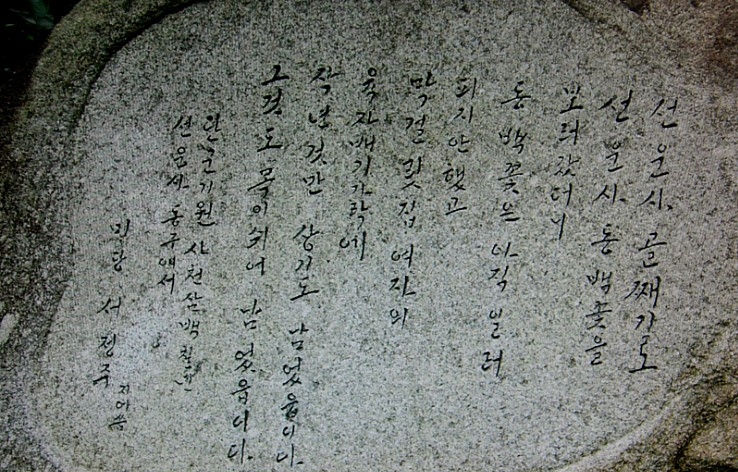 선운사 골째기로
선운사 동백꽃을
보러갔더니
동백꽃은 아직 일러
피지안했고
막걸릿집 여자의
육자배기 가락에
작년것만 상기도 남었읍니다.
그것도 목이쉬어 남었읍니다.
단군기원 사천삼백칠년
선운사 동구에서
미당 서정주 지어씀